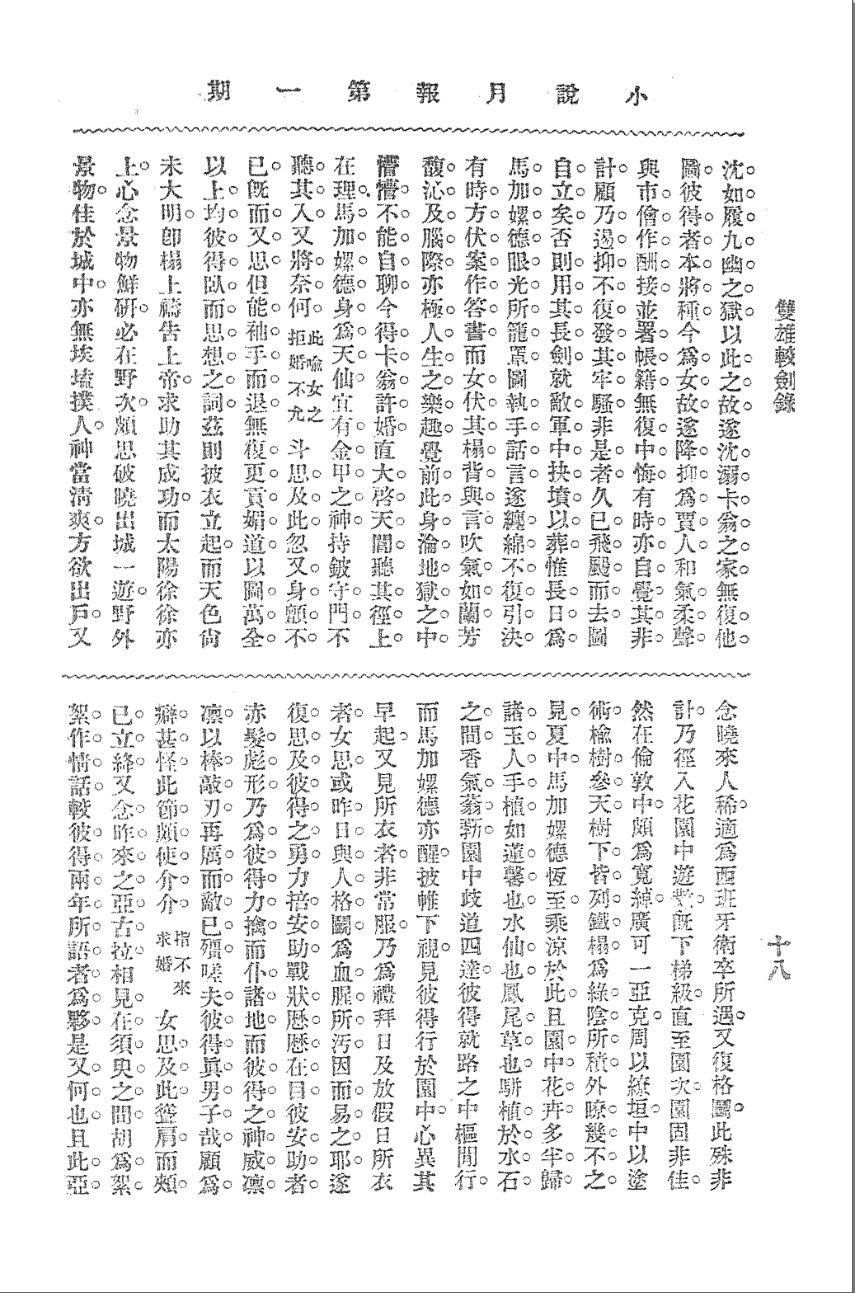 小說月報第一期
雙雄較劍錄
十八
沈如履九幽之獄以此之故遂沈溺卡翁之家無復他
圖彼得者本將種今爲女故遂降抑爲賈人和氣柔聲
與市儈作酬接並署帳籍無復中悔有時亦自覺其非
計顧乃遏抑不復發其牢騷非是者久已飛颺而去圖
自立矣否則用其長劍就敵軍中抉墳以葬惟長日爲
馬加嫘德眼光所籠罩圖執手話言遂纏綿不復引決
有時方伏案作答書而女伏其榻背與言吹氣如蘭芳
馥沁及腦際亦極人生之樂趣覺前此身淪地獄之中
懵懵不能自聊今得卡翁許婚直大啓天閽聽其徑上
在理馬加嫘德身爲天仙宜有金甲之神持鈹守門不
聽其入又將奈何此喻女之拒婚不允斗思及此忽又身顫不
已旣而又思但能袖手而退無復更貢媚道以圖萬全
以上均彼得臥而思想之詞茲則披衣立起而天色尙
未大明卽榻上禱告上帝求助其成功而太陽徐徐亦
上心念景物鮮硏必在野次頗思破曉出城一遊野外
景物佳於城中亦無埃壒撲人神當淸爽方欲出戶又
念曉來人稀適爲西班牙衛卒所遇又復格鬭此殊非
計乃徑入花園中遊覽旣下梯級直至園次園固非佳
然在倫敦中頗爲寬綽廣可一亞克周以繚垣中以塗
術檢樹參天樹下皆列鐵榻爲綠陰所積外瞭幾不之
見夏中馬加嫘德恆至乘涼於此且園中花卉多半歸
諸玉人手植如蓮馨也水仙也鳳尾草也駢植於水石
之間香氣蓊勃園中歧道四達彼得就路之中樞閒行
而馬加嫘德亦醒披帷下視見彼得行於園中心異其
早起又見所衣者非常服乃爲禮拜日及放假日所衣
者女思或昨日與人格鬭爲血腥所汚因而易之耶遂
復思及彼得之勇力掊安助戰狀歷歷在目彼安助者
赤髮彪形乃爲彼得力擒而仆諸地而彼得之神威凜
凜以棒敵刃再厲而敵已殭嗟夫彼得眞男子哉顧爲
癖甚怪此節頗使介介指不來求婚女思及此聳肩而頰
已立絳又念昨來之亞古拉相見在須臾之間胡爲絮
絮作情話較彼得兩年所語者爲夥是又何也且此亞